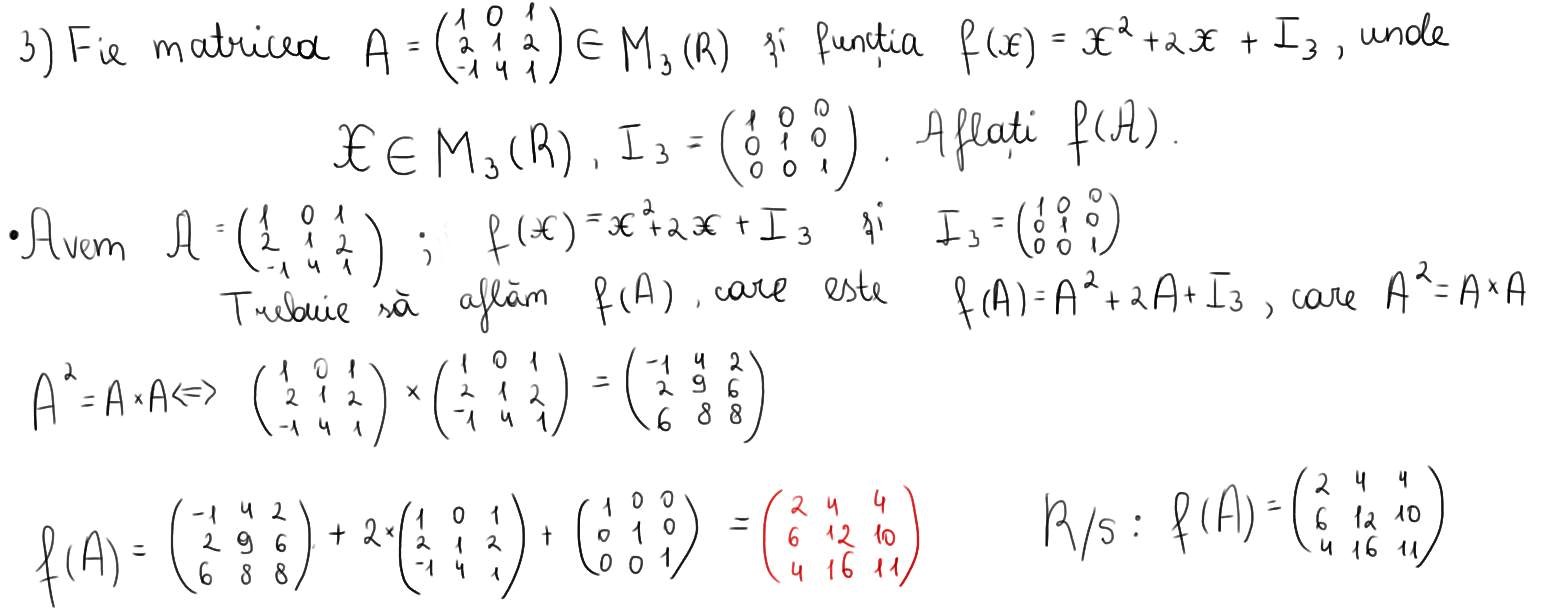 3) Fie matricea A = (1 0 1 / 2 1 2 / -1 4 1) ∈ M₃(R) și funcția f(x) = x² + 2x + I₃, unde
X ∈ M₃(R), I₃ = (1 0 0 / 0 1 0 / 0 0 1). Aflați f(A).
• Avem A = (1 0 1 / 2 1 2 / -1 4 1) ; f(x) = x² + 2x + I₃ și I₃ = (1 0 0 / 0 1 0 / 0 0 1)
Trebuie să aflăm f(A), care este f(A) = A² + 2A + I₃, care A² = A × A
A² = A × A <=> (1 0 1 / 2 1 2 / -1 4 1) × (1 0 1 / 2 1 2 / -1 4 1) = (-1 4 2 / 2 9 6 / 6 8 8)
f(A) = (-1 4 2 / 2 9 6 / 6 8 8) + 2 × (1 0 1 / 2 1 2 / -1 4 1) + (1 0 0 / 0 1 0 / 0 0 1) = (2 4 4 / 6 12 10 / 4 16 11) R/s : f(A) = (2 4 4 / 6 12 10 / 4 16 11)